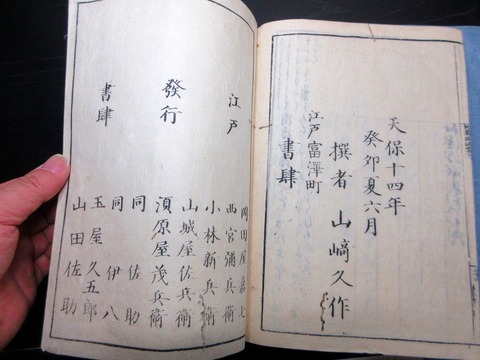 天保十四年
癸卯夏六月
撰者 山﨑久作
江戸富澤町
書肆
江戸
發行
書肆
岡田屋嘉七
西宮彌兵衛
小林新兵衛
山城屋佐兵衛
湏原屋茂兵衛
同 佐助
同 伊八
玉屋久五郎
山田佐助